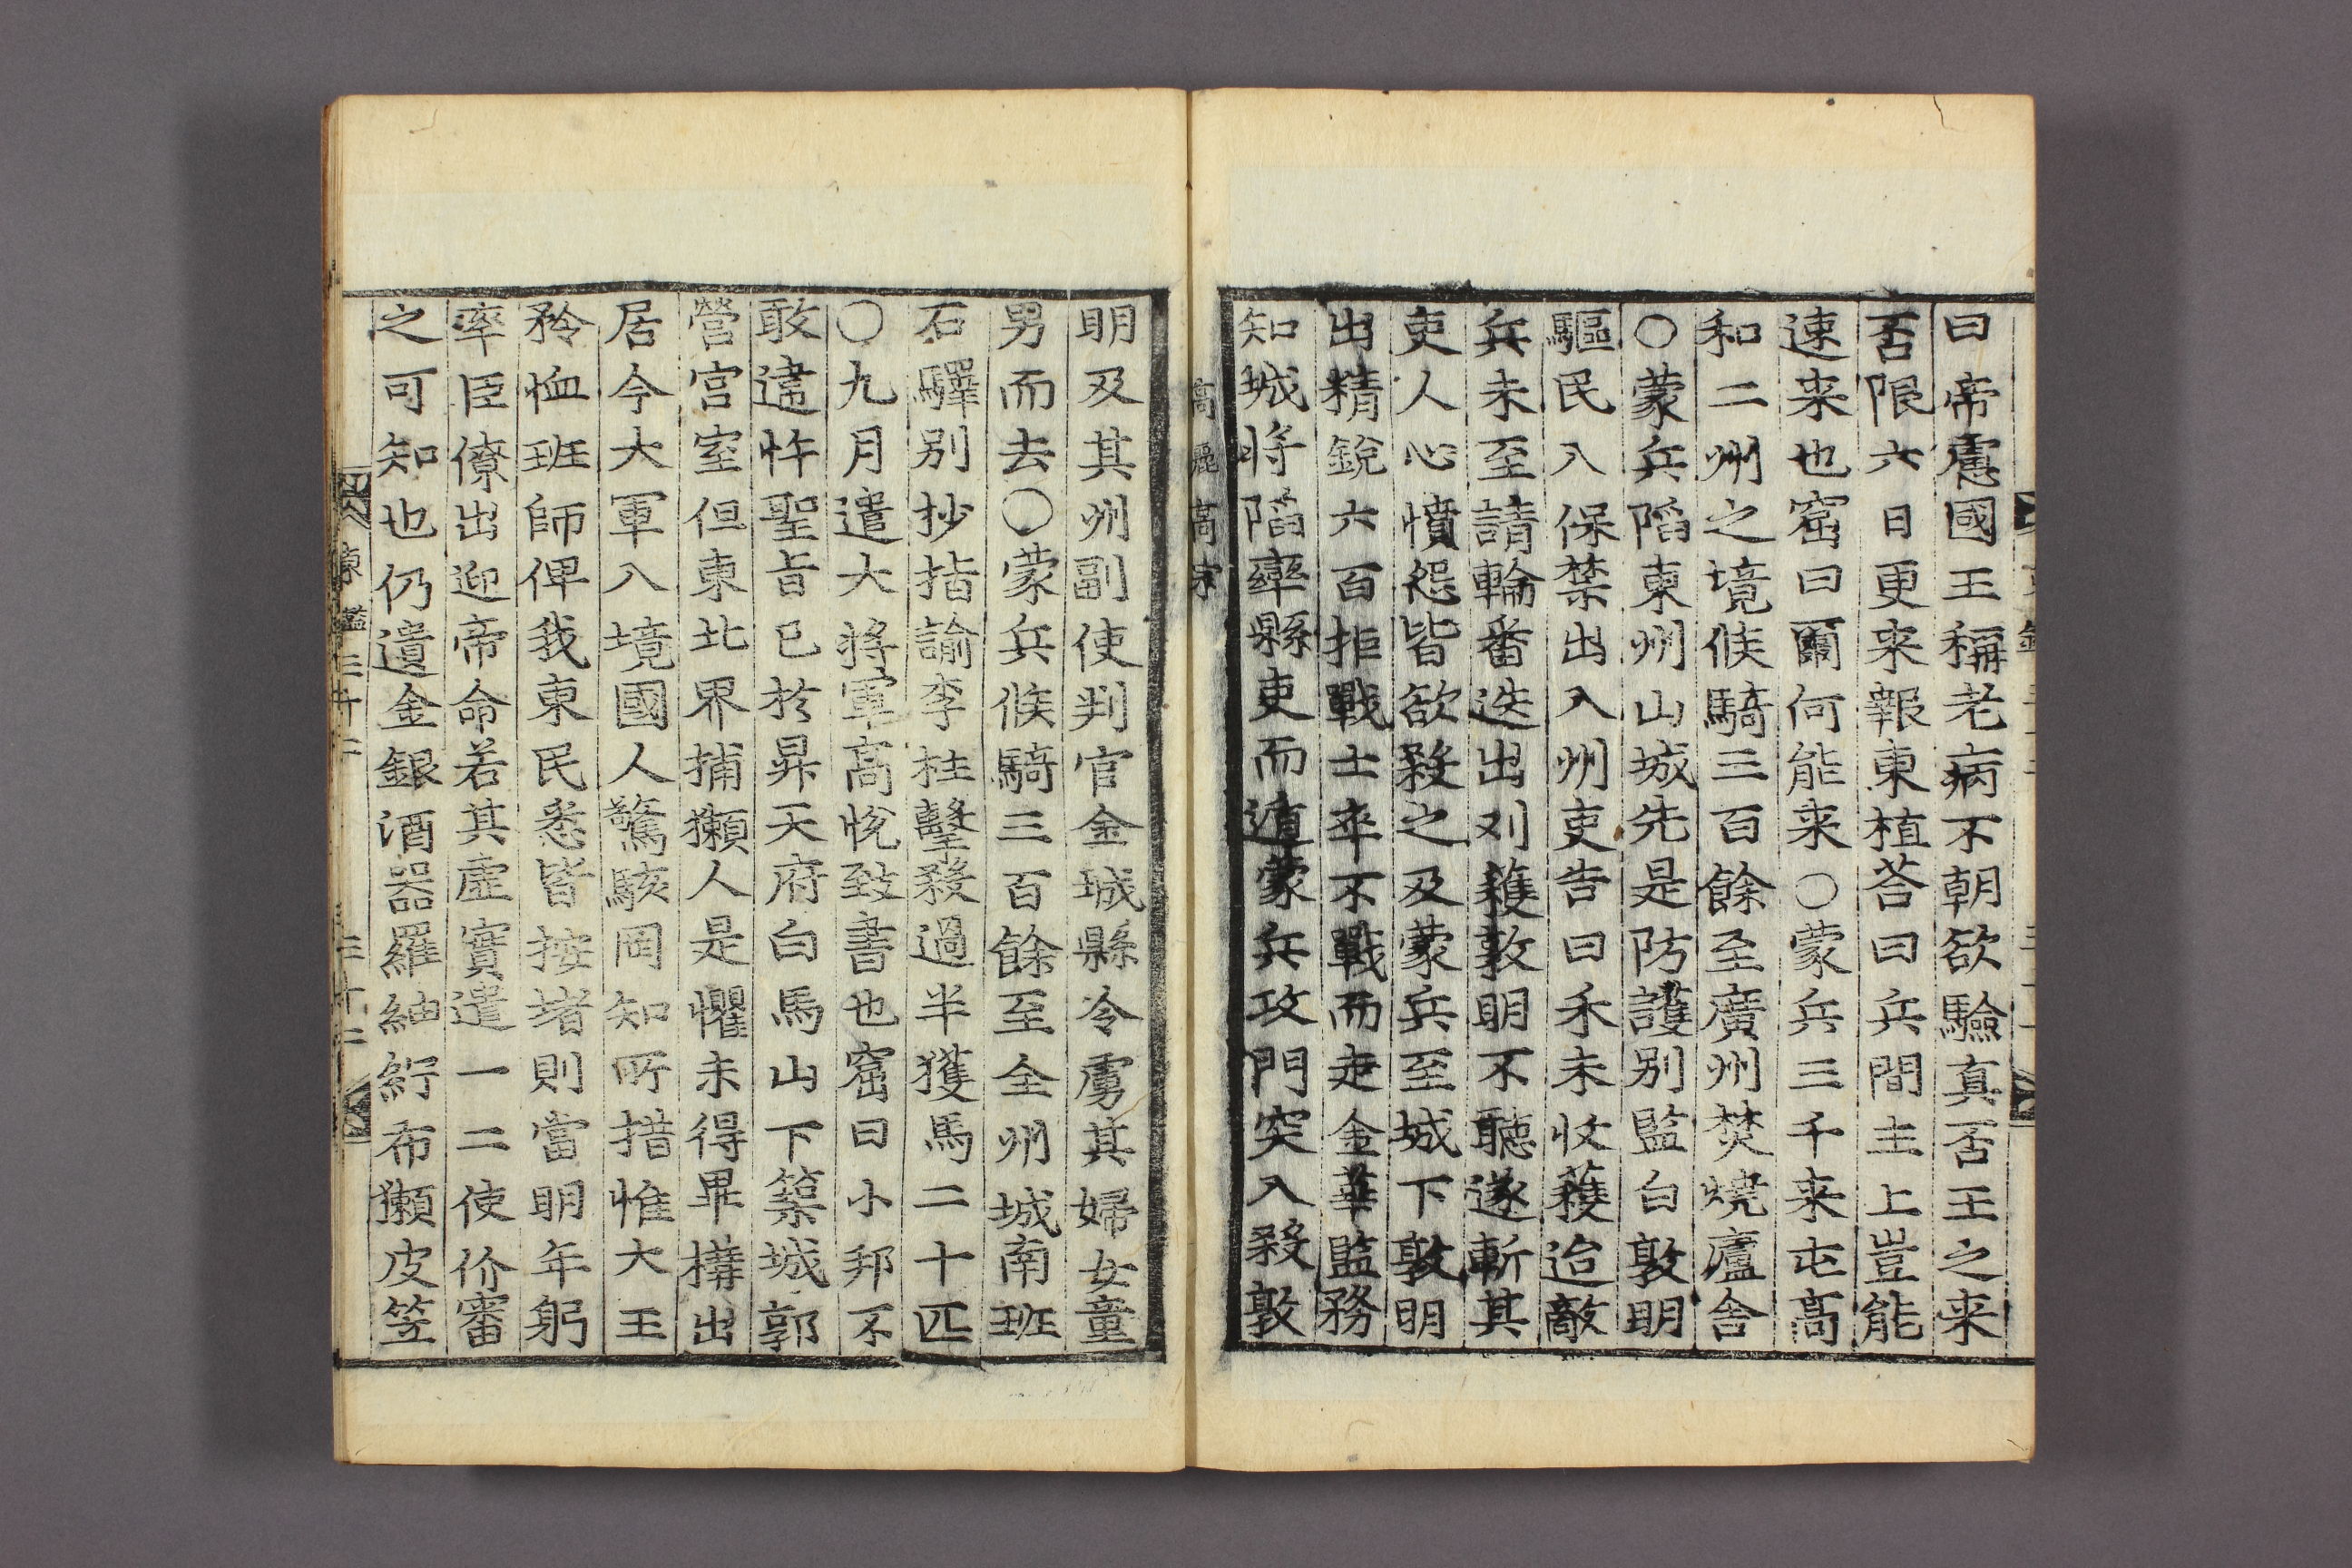 曰帝慮國王稱老病不朝欲驗真否王之来
否限六日更来報東植荅曰兵間主上豈能
速来也窟曰爾何能来○蒙兵三千来屯高
和二州之境候騎三百餘至廣州焚燒廬舎
○蒙兵陷東州山城先是防護别監白敦明
驅民入保禁出入州吏告曰禾未收穫迨敵
兵未至請輪番迭出刈穫敦明不聽遂斬其
吏人心憤怨皆欲殺之及蒙兵至城下敦明
出精銳六百拒戰士卒不戰而走金華監務
知城將陷率縣吏而遁蒙兵攻門突入殺敦
高麗高宗
明及其州副使判官金城縣令虜其婦女童
男而去○蒙兵候騎三百餘至全州城南班
石驛别抄指諭李桂擊殺過半獲馬二十匹
○九月遣大將軍高悅致書也窟曰小邦不
敢違忤聖旨已於昇天府白馬山下築城郭
營宮室但東北界捕獺人是懼未得畢構出
居今大軍入境國人驚駭罔知所措惟大王
矜恤班師俾我東民悉皆按堵則當明年躬
率臣僚出迎帝命若其虛實遣一二使价審
之可知也仍遺金銀酒器羅紬紵布獺皮笠
東鑑三十二 三十二